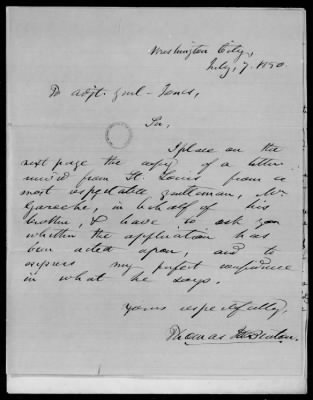 Washington City,
July, 7. 1850.
To adjt. Genl. Jones,
Sir,
I place on the
next page the copy of a letter
recd from St. Louis from a
most respectable gentleman, Mr
Garesche, in behalf of his
brother, & have to ask you
whether the application has
been acted upon, and to
express my perfect confidence
in what he says.
Yours respectfully,
Thomas H. Benton.